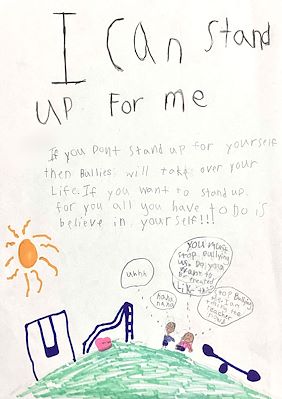 I Can Stand
up For me
If you Dont stand up for yourself
then Bullies will take over your
Life. If you want to stand up
for you all you have to Do is
believe in yourself!!!
uhhh
haha
haha
YOU Must
stop bullying
us. Do you
want to
be treated
Like this
stop Bullying
me. I am
telling the
teacher